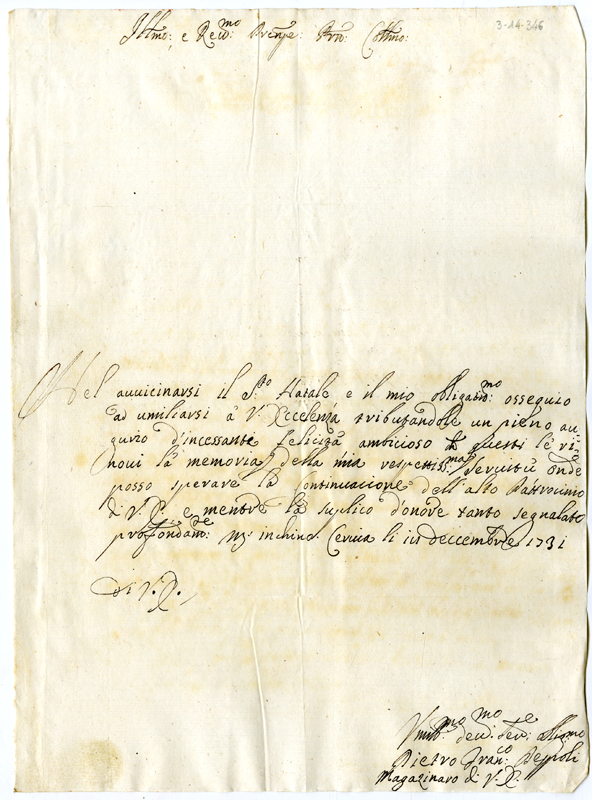 3-14-346
Illmo: e Reud:mo Prenpe: Prn: Collmo:
Nel auuicinarsi il S:to Natale e il mio obligatis:mo ossequio
ad umiliarsi à V: Eccelenza tributandole un pieno au-
gurio d'incessante felicità ambicioso questi le ri-
noui la memoria della mia respettiss:ma Seruitù onde
posso sperare la Continuacione dell'alto Patrocinio
di V: E: e mentre la suplico d'onore tanto segnalato
profondam:te m'inchino Ceruia li deccembre 1731
Di V. E.
Vmil:mo deu:mo Ser:e
Pietro Fran:co
Magazinaro di V: E: